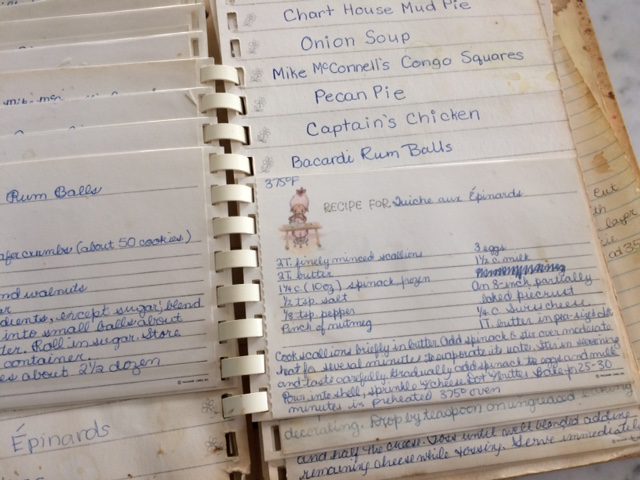 Rum Balls
afercrumbs (about 50 cookies)
nd walnuts
er
dients, except sugar; blend
into small balls about
ter. Roll in sugar. Store
container.
es about 2½ dozen
Épinards
Chart House Mud Pie
Onion Soup
Mike McConnell's Congo Squares
Pecan Pie
Captain's Chicken
Bacardi Rum Balls
375°F
RECIPE FOR Quiche aux Épinards
2T. finely minced scallions
2T. butter
1¼ c. (10oz) spinach, frozen
½ tsp salt
⅛ tsp. pepper
Pinch of nutmeg
3 eggs
1½ c. milk
An 8-inch partially
baked piecrust
¼ c. Swiss cheese
1T. butter in pea-size dots
Cook scallions briefly in butter. Add spinach & stir over moderate
heat for several minutes to evaporate its water. Stir in seasoning
and taste carefully. Gradually add spinach to eggs and milk.
Pour into shell, sprinkle w/cheese. Dot w/butter. Bake for 25-30
minutes in preheated 375° oven
decorating. Drop by teaspoon on ungreased
and half the cheese. Toss until well blended adding
remaining cheese while tossing. Serve immediately
Cut
th
layer
ad 35